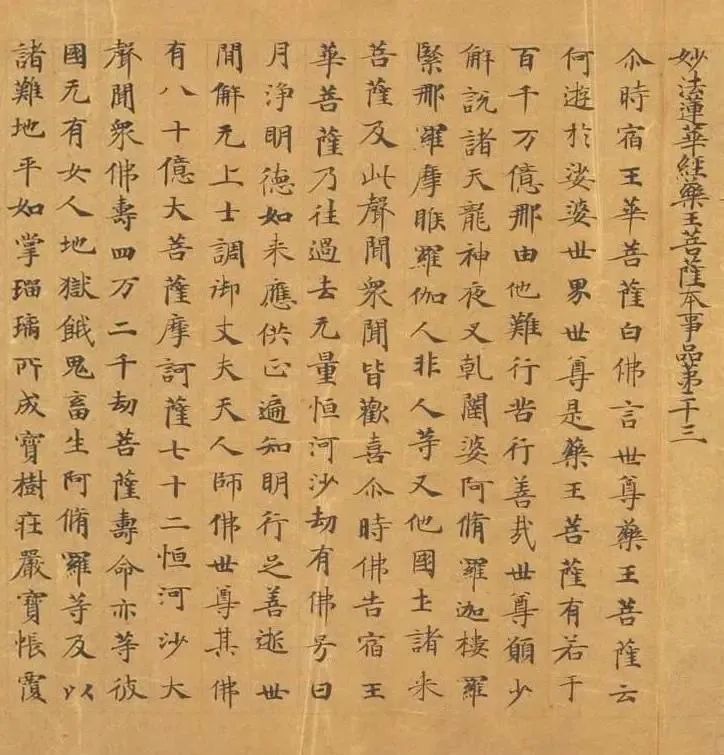 妙法蓮華經藥王菩薩本事品第二十三
尒時宿王華菩薩白佛言世尊藥王菩薩云
何遊於娑婆世界世尊是藥王菩薩有若干
百千万億那由他難行苦行善㢤世尊願少
解說諸天龍神夜叉乹闥婆阿脩羅迦樓羅
緊那羅摩睺羅伽人非人等又他國土諸来
菩薩及此聲聞衆聞皆歡喜尒時佛告宿王
華菩薩乃往過去无量恒河沙劫有佛号曰
月淨明德如来應供正遍知明行足善逝世
間解无上士調御丈夫天人師佛世尊其佛
有八十億大菩薩摩訶薩七十二恒河沙大
聲聞衆佛壽四万二千劫菩薩壽命亦等彼
國无有女人地獄餓鬼畜生阿脩羅等及以
諸難地平如掌瑠璃所成寶樹莊嚴寶帳覆